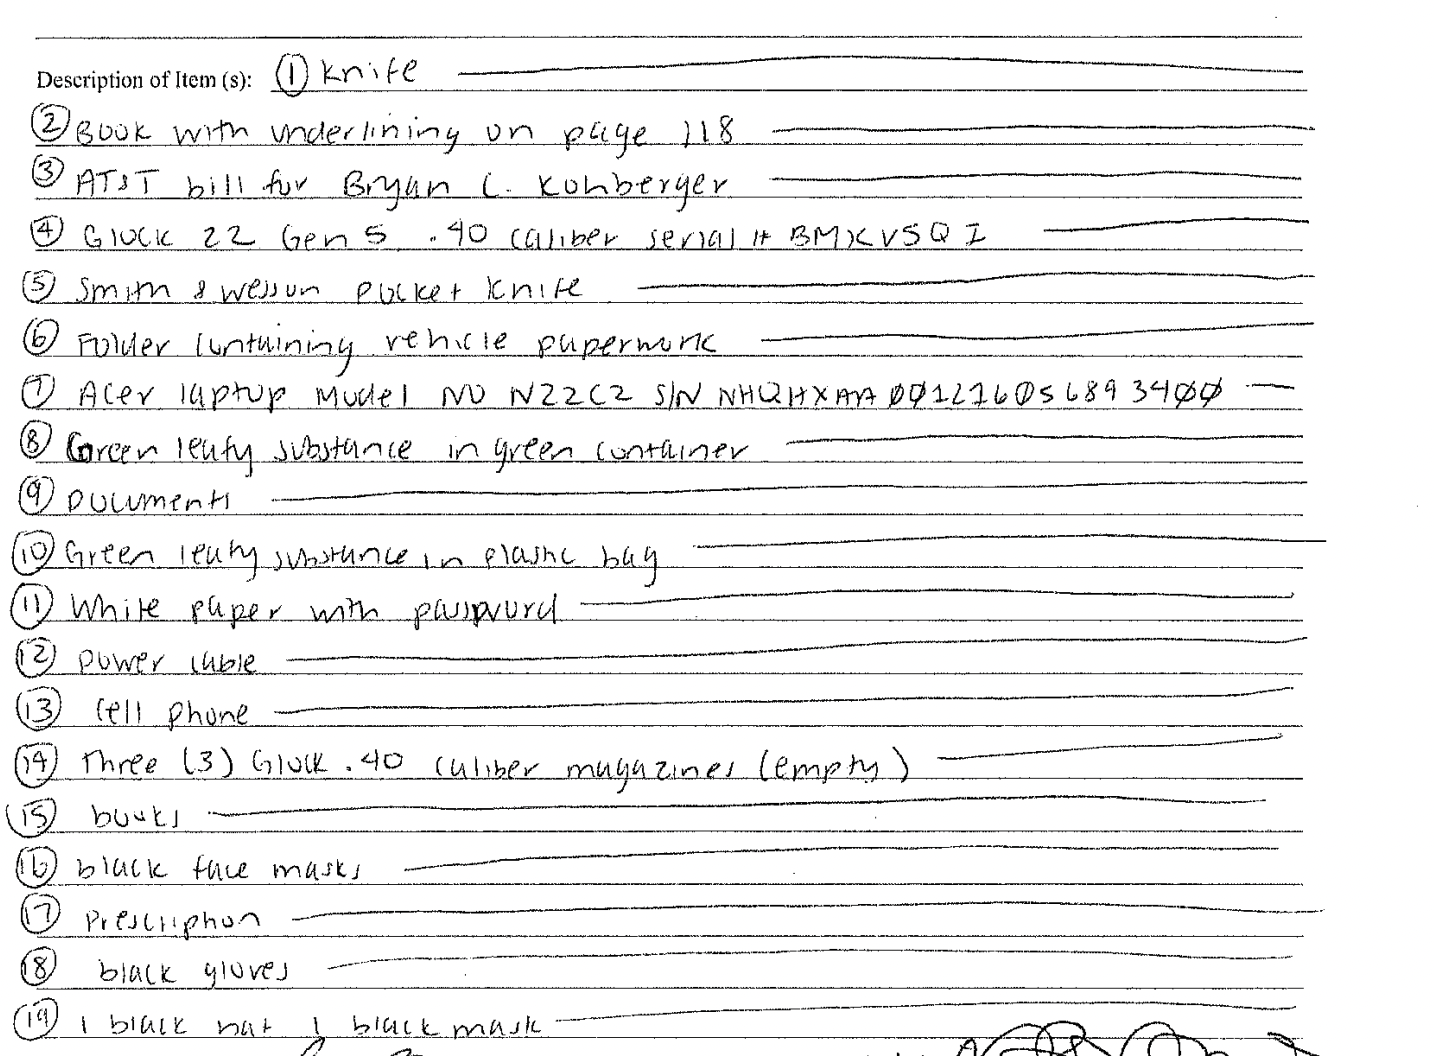 Description of Item (s): ① Knife
② Book with underlining on page 118
③ AT&T bill for Bryan C. Kohberger
④ Glock 22 Gen 5 .40 caliber serial #
⑤ Smith & wesson pocket knife
⑥ Folder containing vehicle paperwork
⑦ Acer laptop Model NO N22C2 S/N
⑧ Green leafy substance in green container
⑨ Documents
⑩ Green leafy substance in plastic bag
⑪ White paper with password
⑫ power cable
⑬ cell phone
⑭ Three (3) Glock .40 caliber magazines (empty)
⑮ books
⑯ black face masks
⑰ Prescription
⑱ black gloves
⑲ 1 black hat 1 black mask